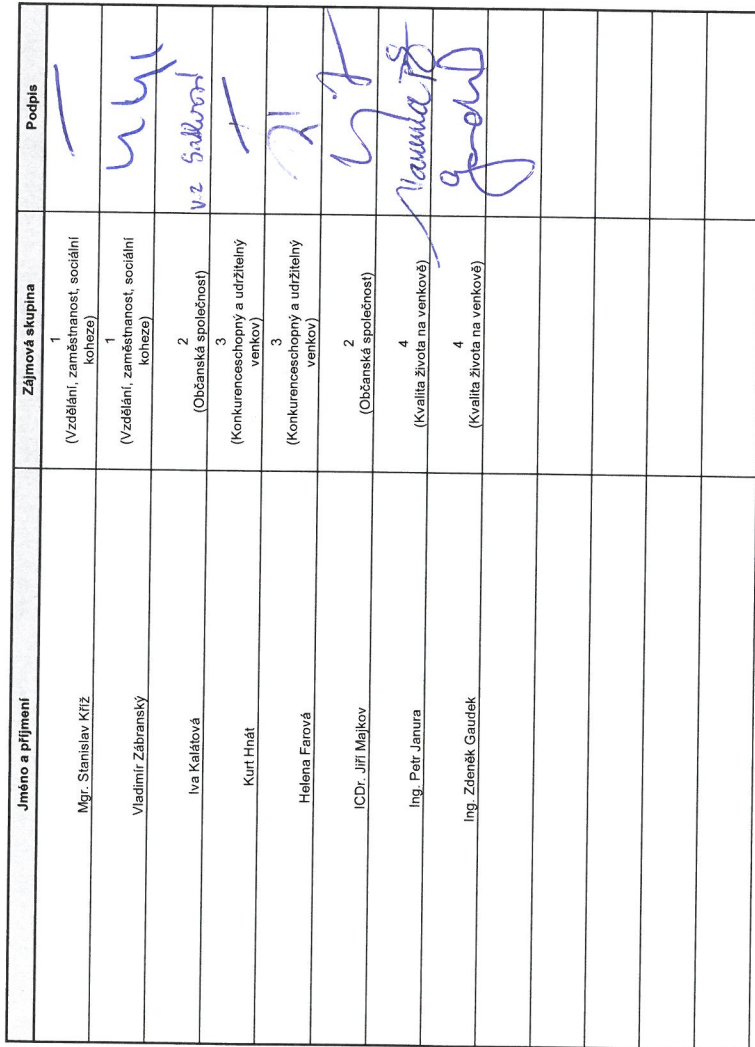 Jméno a příjmení Zájmová skupina Podpis
Mgr. Stanislav Kříž
1
(Vzdělání, zaměstnanost, sociální
koheze)
Vladimír Zábranský
1
(Vzdělání, zaměstnanost, sociální
koheze)
Iva Kalátová
2
(Občanská společnost)
v.z.
Kurt Hnát
3
(Konkurenceschopný a udržitelný
venkov)
Helena Farová
3
(Konkurenceschopný a udržitelný
venkov)
ICDr. Jiří Majkov
2
(Občanská společnost)
Ing. Petr Janura
4
(Kvalita života na venkově)
Ing. Zdeněk Gaudek
4
(Kvalita života na venkově)